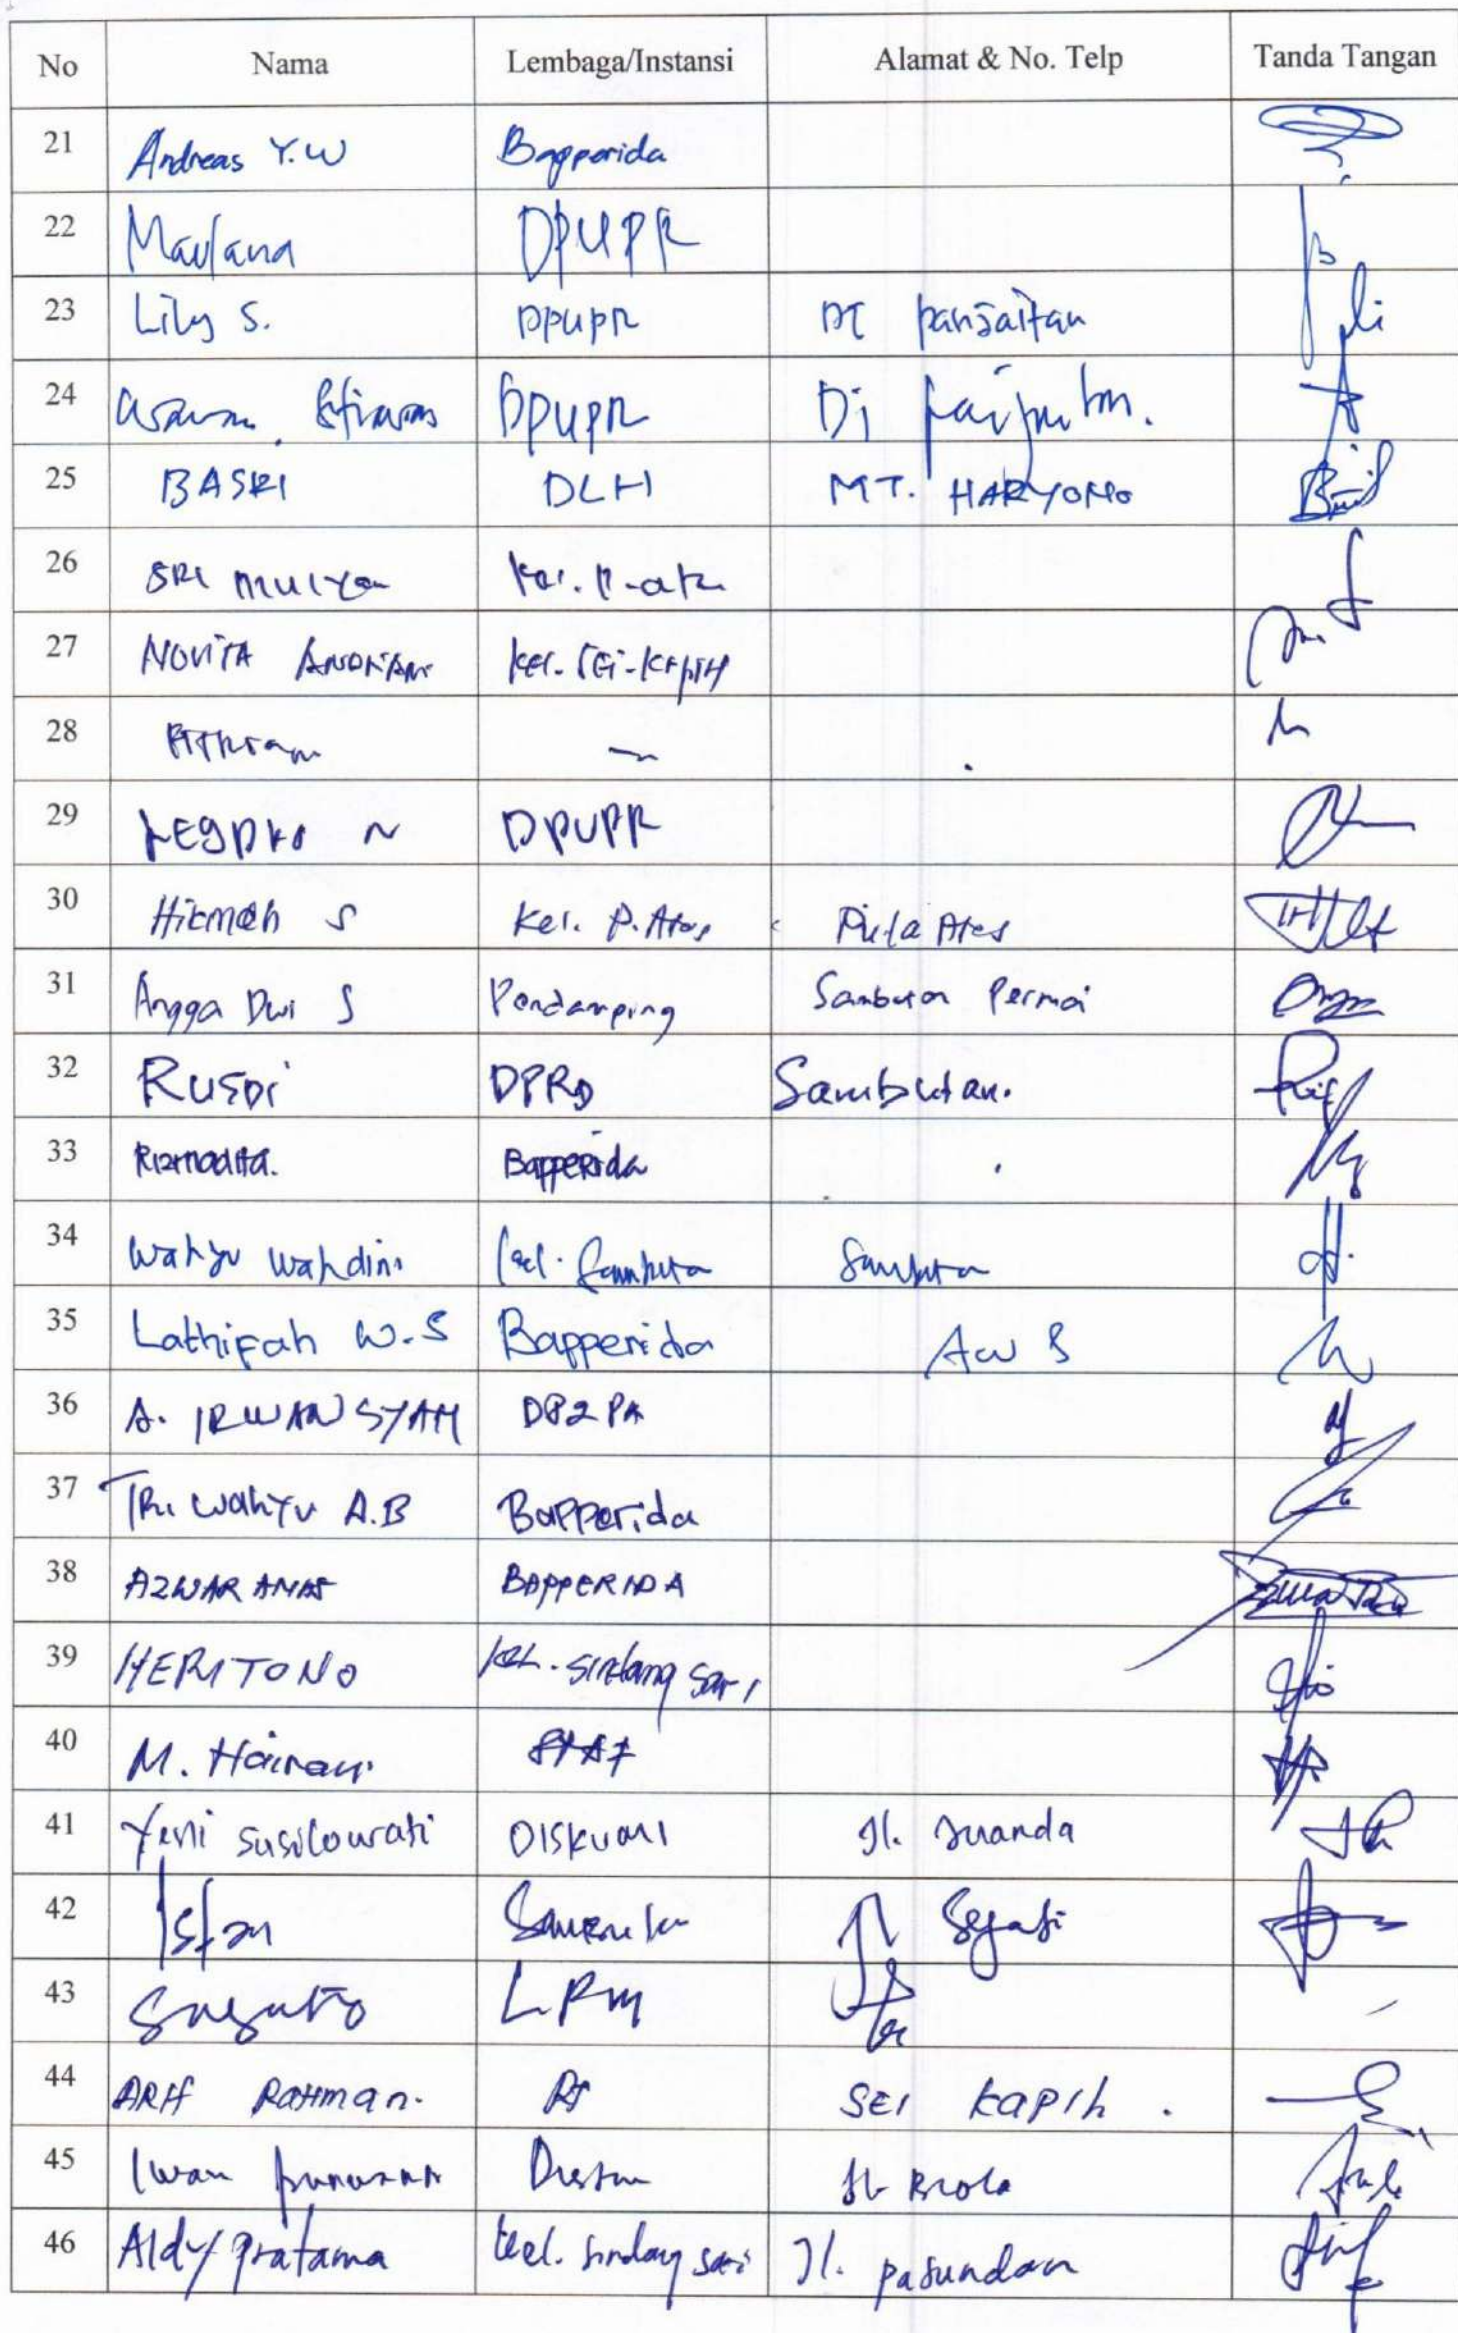 No Nama Lembaga/Instansi Alamat & No. Telp Tanda Tangan
21 Andreas Y.W Bapperida
22 Maulana DPUPR
23 Lily S. DPUPR DI panjaitan
24 DPUPR
25 BASRI DLH MT. HARYONO
26 SRI MULYA
27 NOVITA ANDRIANI Kel. SEi-KAPIH
28
29 DPUPR
30 Hikmah S Kel. P. Atas Pula Atas
31 Angga Dwi S Pendamping Sambutan Permai
32 RUSDI DPRD Sambutan.
33 Bapperida
34 Wahyu Wahdini Kel. Sambutan Sambutan
35 Lathifah W.S Bapperida AW S
36 A. IRWANSYAH DP2PA
37 TRI Wahyu A.B Bapperida
38 AZWAR ANAS BAPPERIDA
39 HERITONO Kel. Sindang Sari
40 M. Hairani STAF
41 Yeni Susilowati DISKUMI Jl. Juanda
42
43 LPM
44 ARIF Rahman. RT SEI KAPIH .
45 Iwan
46 Aldy pratama Kel. Sindang Sari Jl. pasundan